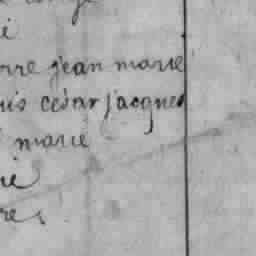 rre jean marie
uis césar jacques
marie
rie
re